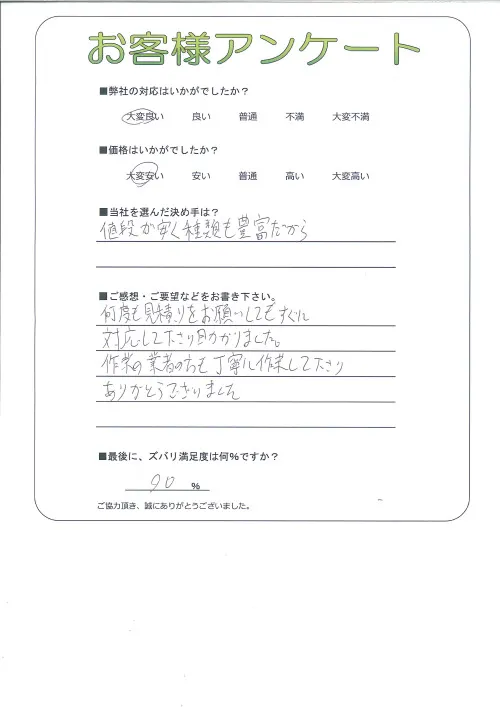 お客様アンケート
■弊社の対応はいかがでしたか？
大変良い 良い 普通 不満 大変不満
■価格はいかがでしたか？
大変安い 安い 普通 高い 大変高い
■当社を選んだ決め手は？
値段が安く種類も豊富だから
■ご感想・ご要望などをお書き下さい。
何度も見積りをお願いしてもすぐに
対応して下さり助かりました。
作業の業者の方も丁寧に作業して下さり
ありがとうございました
■最後に、ズバリ満足度は何％ですか？
90 ％
ご協力頂き、誠にありがとうございました。